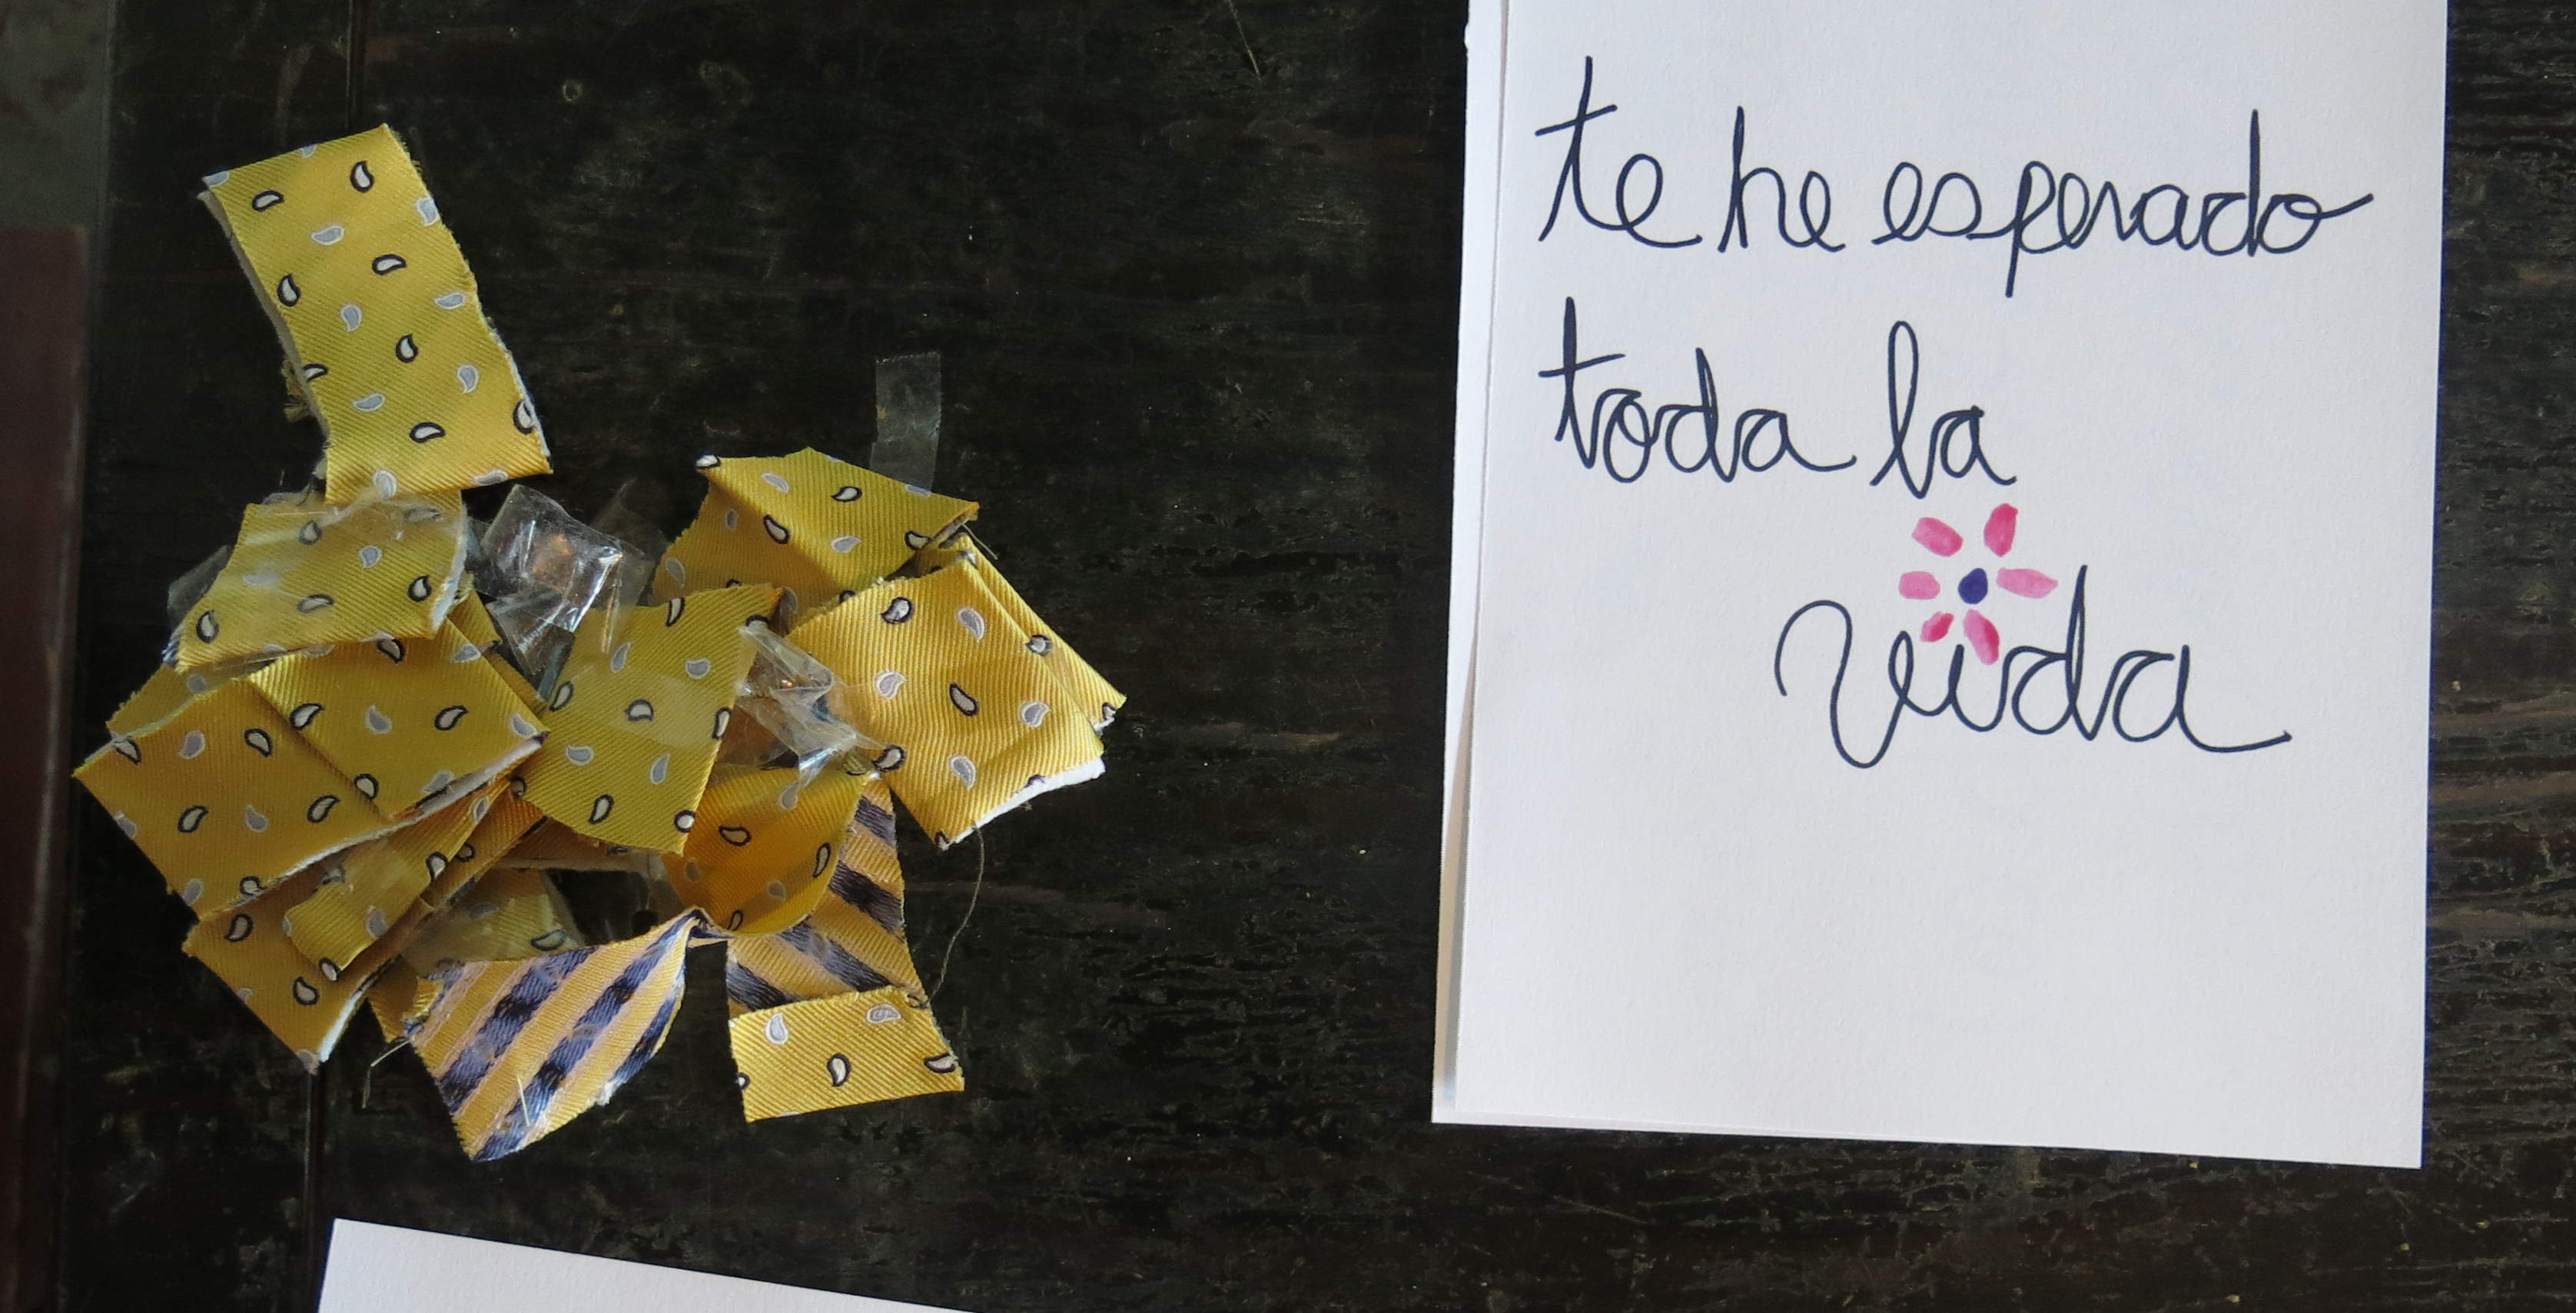 te he esperado
toda la
vida